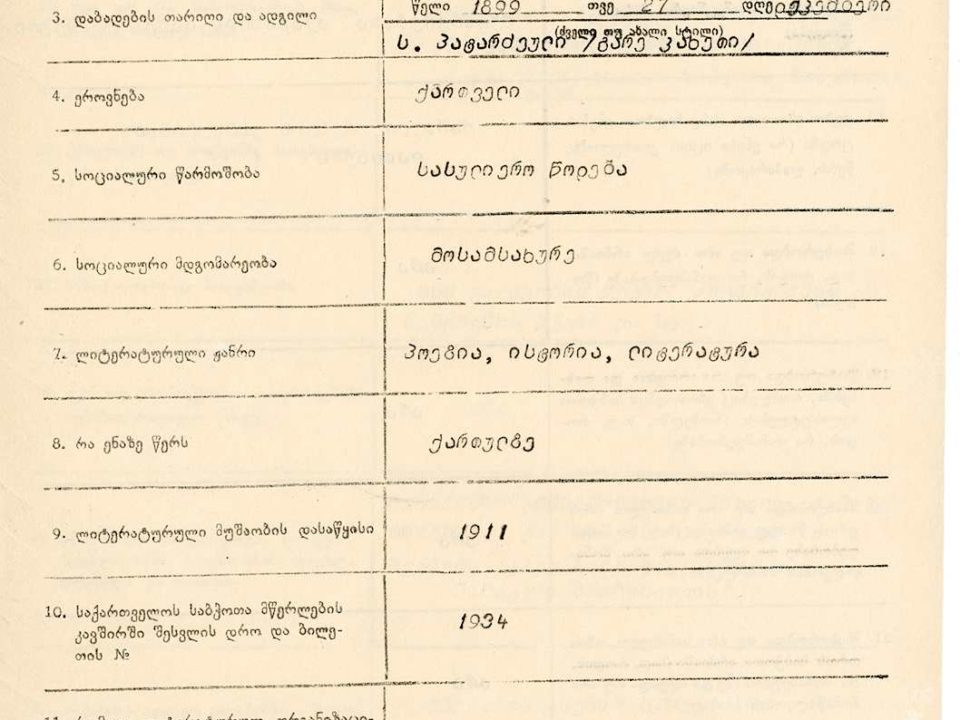 3. დაბადების თარიღი და ადგილი
წელი 1899 თვე 27 დღე დეკემბერი
(ძველი თუ ახალი სტილი)
ს. პატარძეული /გარე კახეთი/
4. ეროვნება
ქართველი
5. სოციალური წარმოშობა
სასულიერო წოდება
6. სოციალური მდგომარეობა
მოსამსახურე
7. ლიტერატურული ჟანრი
პოეზია, ისტორია, ლიტერატურა
8. რა ენაზე წერს
ქართულზე
9. ლიტერატურული მუშაობის დასაწყისი
1911
10. საქართველოს საბჭოთა მწერლების
კავშირში შესვლის დრო და ბილე-
თის №
1934